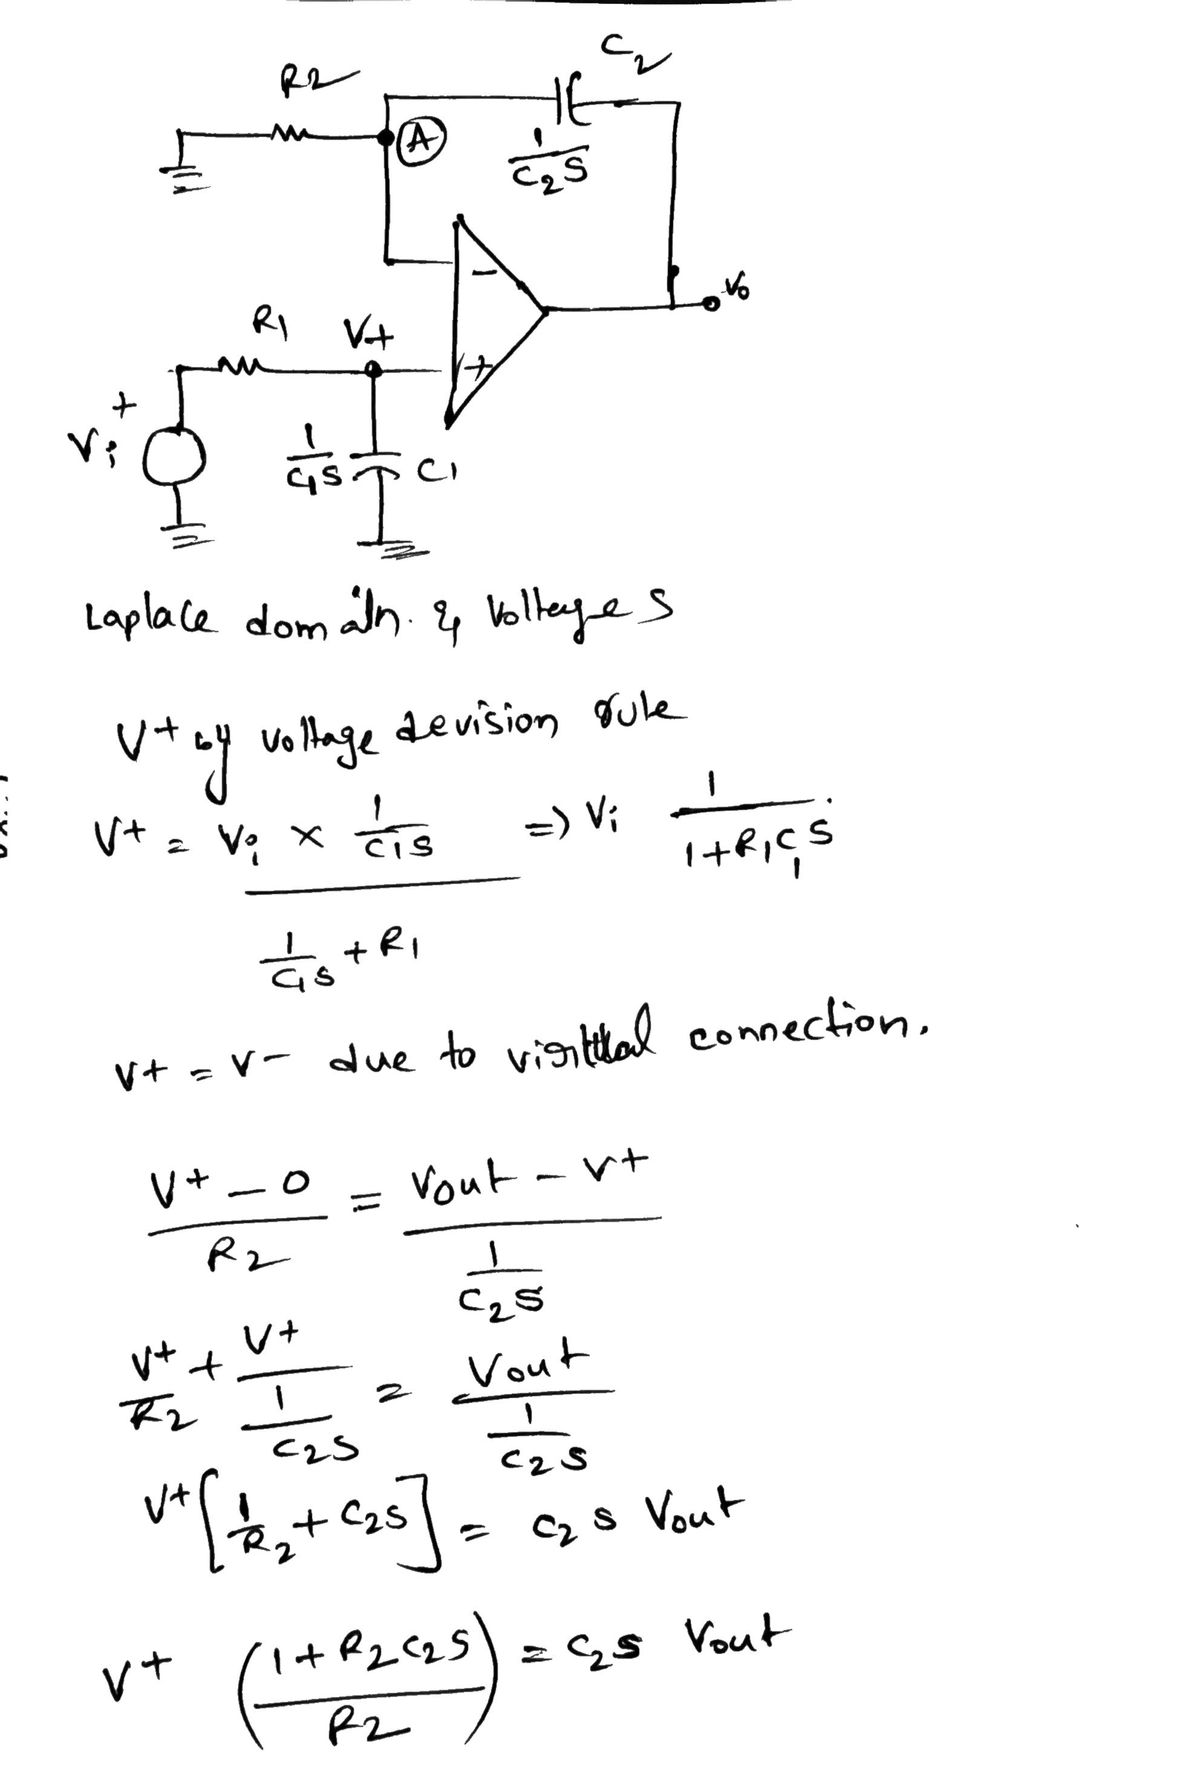 C2
R2
A
1/C2S
−
V0
R1 V+
+
+
Vi
1/C1S C1
Laplace domain. & Voltages
V+ by voltage devision rule
V+ = Vi × 1/C1S / (1/C1S + R1) => Vi 1/(1+R1C1S)
V+ = V− due to virtual connection.
(V+ − 0)/R2 = (Vout − V+)/(1/C2S)
V+/R2 + V+/(1/C2S) = Vout/(1/C2S)
V+ [1/R2 + C2S] = C2 S Vout
V+ ((1 + R2C2S)/R2) = C2S Vout